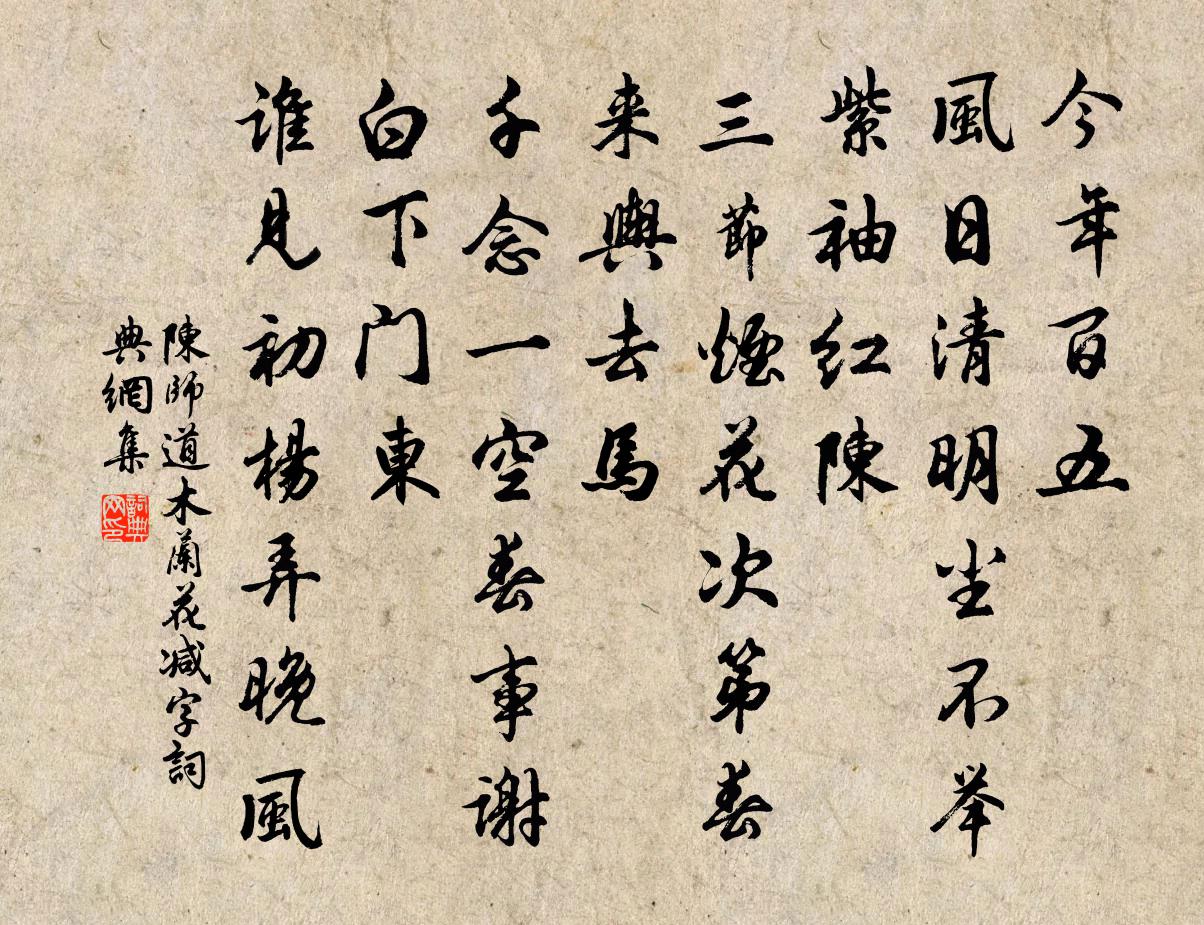 今年百五
風日清明尘不举
紫袖红陳
三節煙花次第春
来輿去馬
千念一空春事謝
白下门東
誰見初楊弄晚風
陳師道木蘭花减字詞
典網集
詞典网印